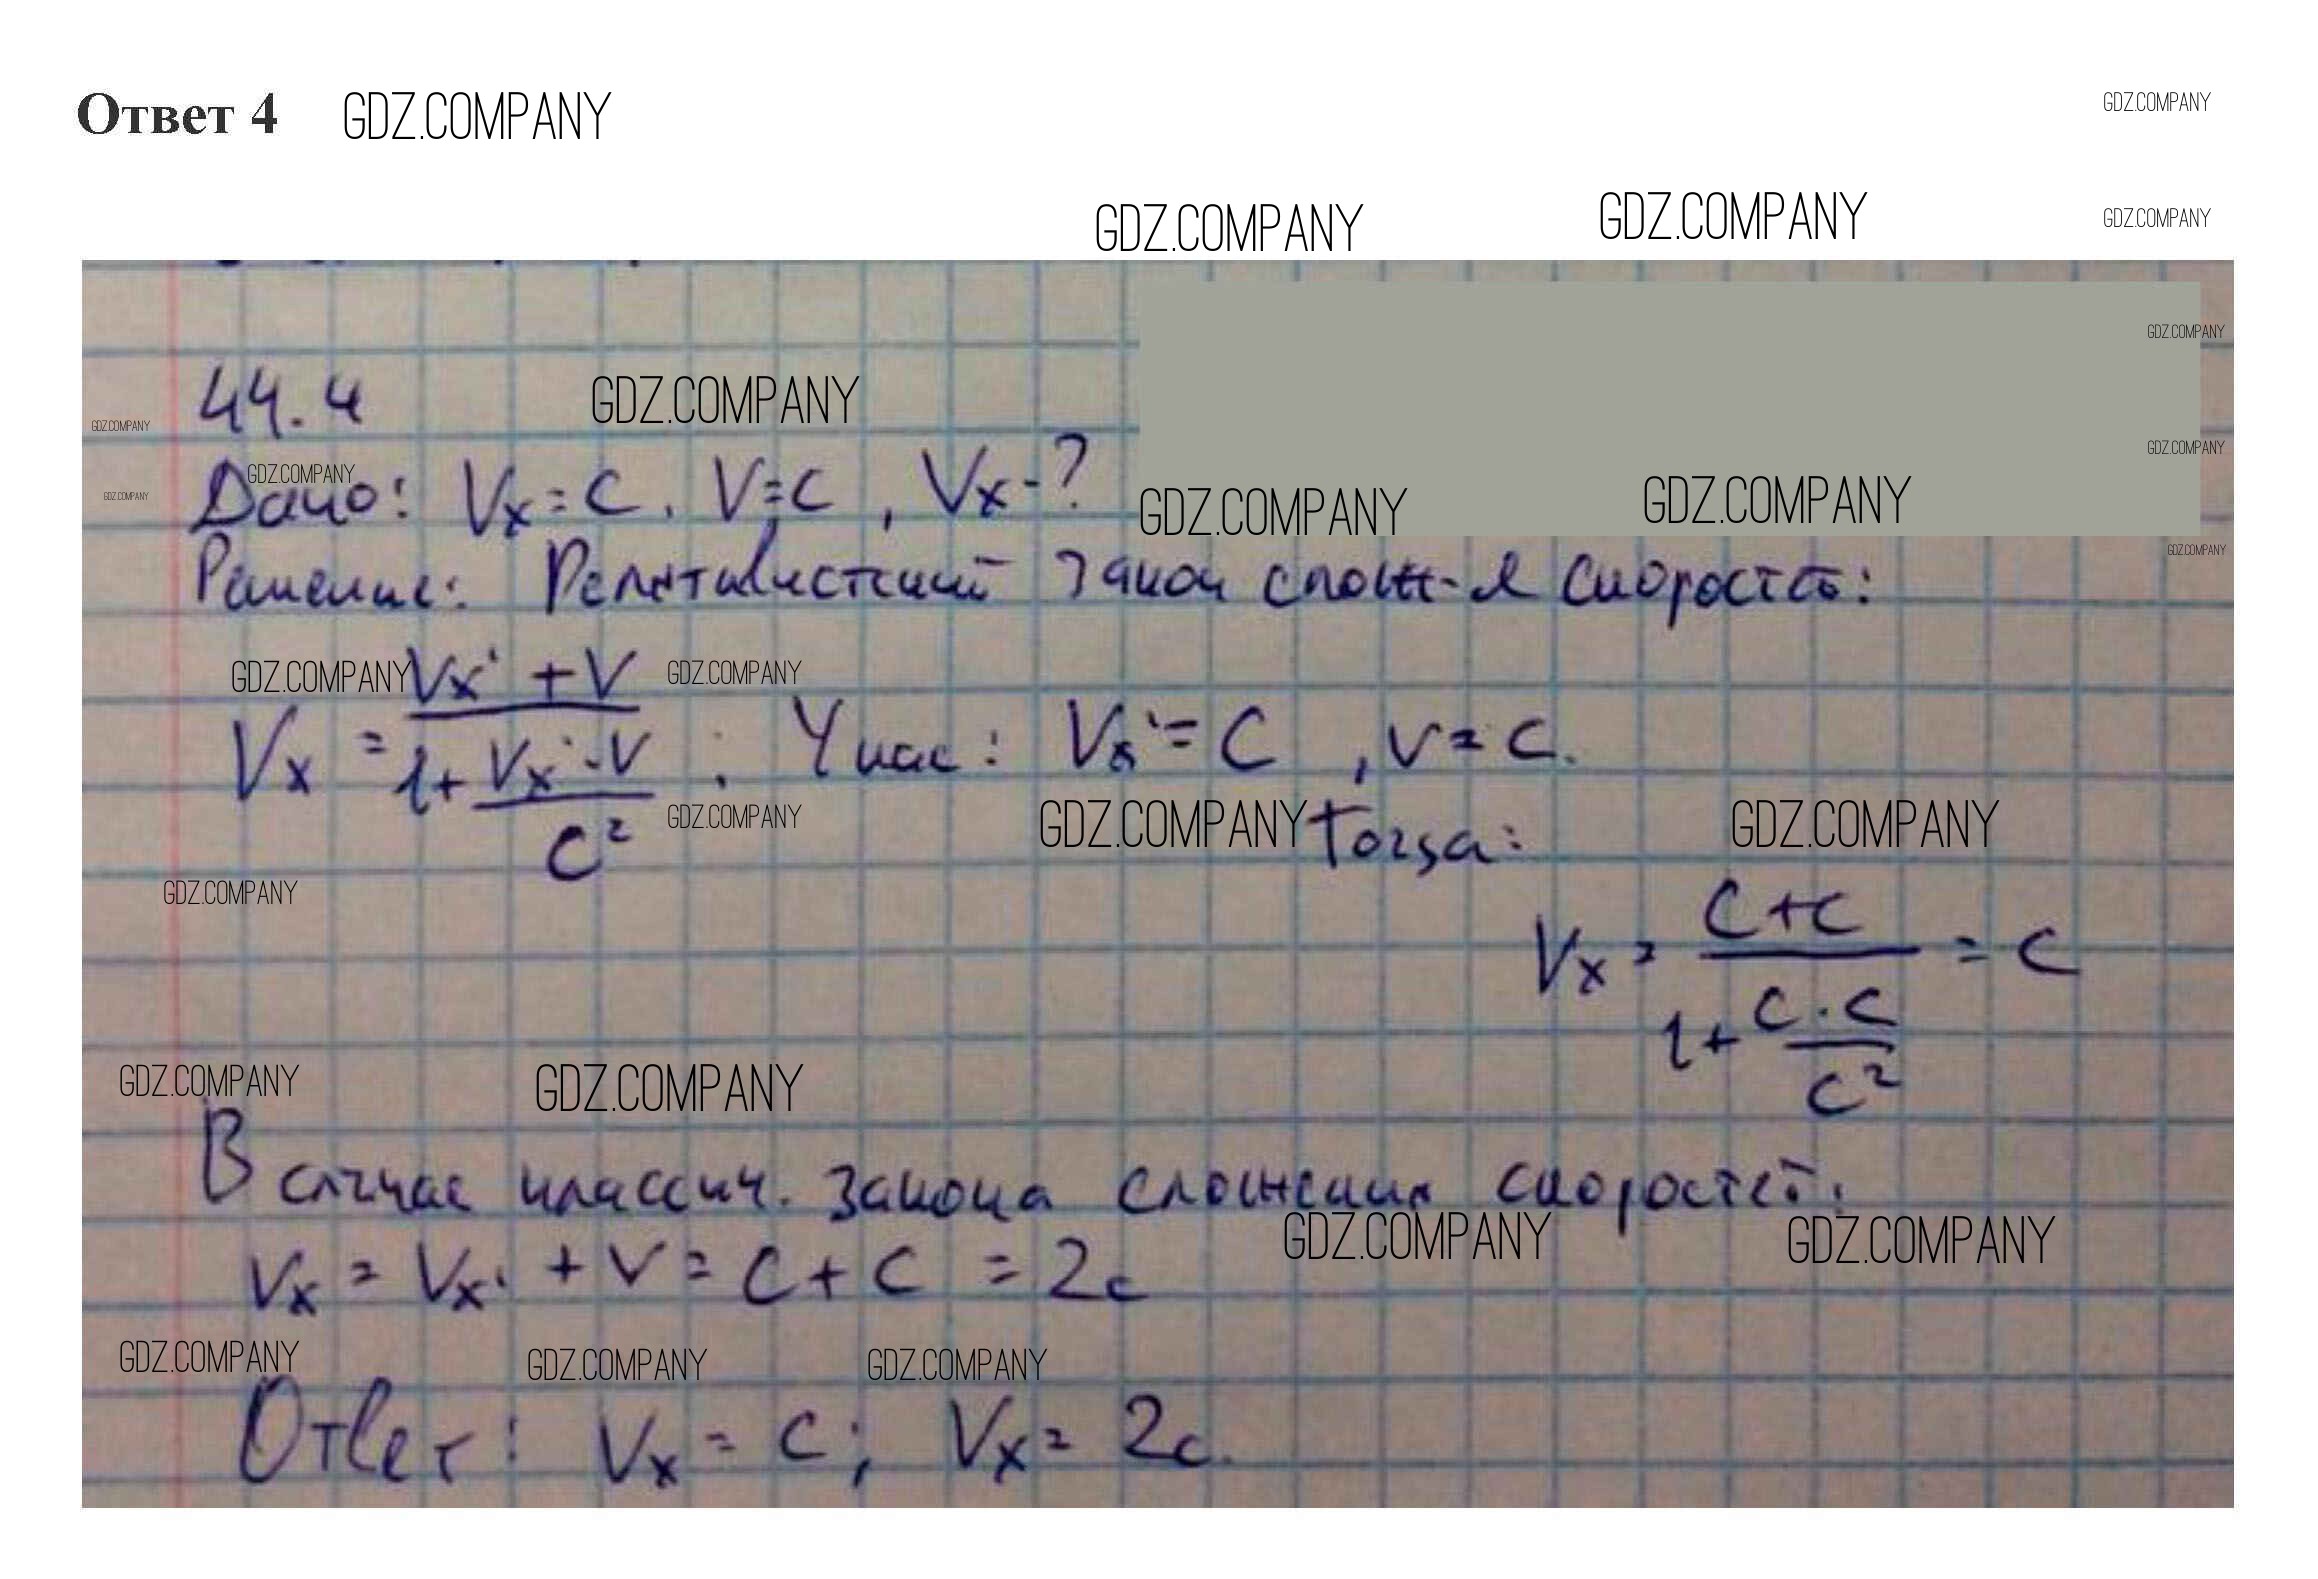 Ответ 4 GDZ.COMPANY GDZ.COMPANY
GDZ.COMPANY GDZ.COMPANY GDZ.COMPANY
GDZ.COMPANY
44.4 GDZ.COMPANY
GDZ.COMPANY GDZ.COMPANY
GDZ.COMPANY GDZ.COMPANY
Дано: Vx = C, V = C, Vx - ? GDZ.COMPANY GDZ.COMPANY
GDZ.COMPANY
Решение: Релятивистский закон слож-я скоростей:
GDZ.COMPANY GDZ.COMPANY
Vx = (Vx' + V) / (1 + Vx'·V / C²); У нас: Vx' = C, V = C.
GDZ.COMPANY GDZ.COMPANY Тогда: GDZ.COMPANY
GDZ.COMPANY
Vx = (C + C) / (1 + C·C / C²) = C
GDZ.COMPANY GDZ.COMPANY
В случае классич. закона сложения скоростей:
GDZ.COMPANY GDZ.COMPANY
Vx = Vx' + V = C + C = 2c
GDZ.COMPANY GDZ.COMPANY GDZ.COMPANY
Ответ: Vx = C; Vx = 2c.